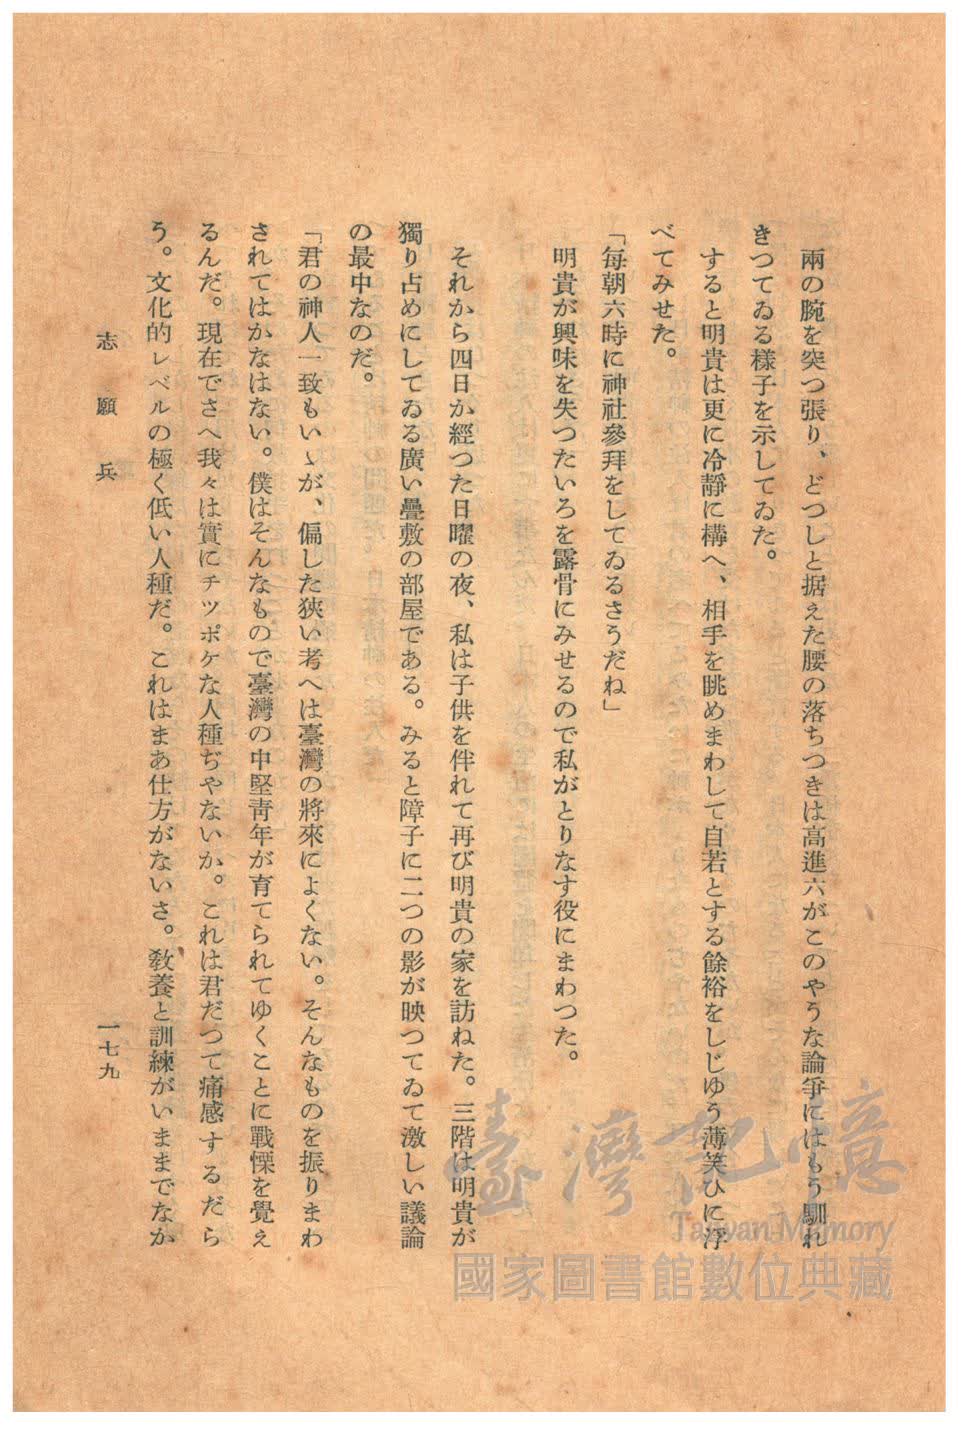 兩の腕を突つ張り、どつしと据えた腰の落ちつきは高進六がこのやうな論爭にはもう馴れ
きつてゐる樣子を示してゐた。
すると明貴は更に冷靜に構へ、相手を眺めまわして自若とする餘裕をしじゆう薄笑ひに浮
べてみせた。
「每朝六時に神社參拜をしてゐるさうだね」
明貴が興味を失つたいろを露骨にみせるので私がとりなす役にまわつた。
それから四日か經つた日曜の夜、私は子供を伴れて再び明貴の家を訪ねた。三階は明貴が
獨り占めにしてゐる廣い疊敷の部屋である。みると障子に二つの影が映つてゐて激しい議論
の最中なのだ。
「君の神人一致もいゝが、偏した狹い考へは臺灣の將來によくない。そんなものを振りまわ
されてはかなはない。僕はそんなもので臺灣の中堅靑年が育てられてゆくことに戰慄を覺え
るんだ。現在でさへ我々は實にチツポケな人種ぢやないか。これは君だつて痛感するだら
う。文化的レベルの極く低い人種だ。これはまあ仕方がないさ。敎養と訓練がいままでなか
志願兵
一七九
臺灣記憶
Taiwan Memory
國家圖書館數位典藏